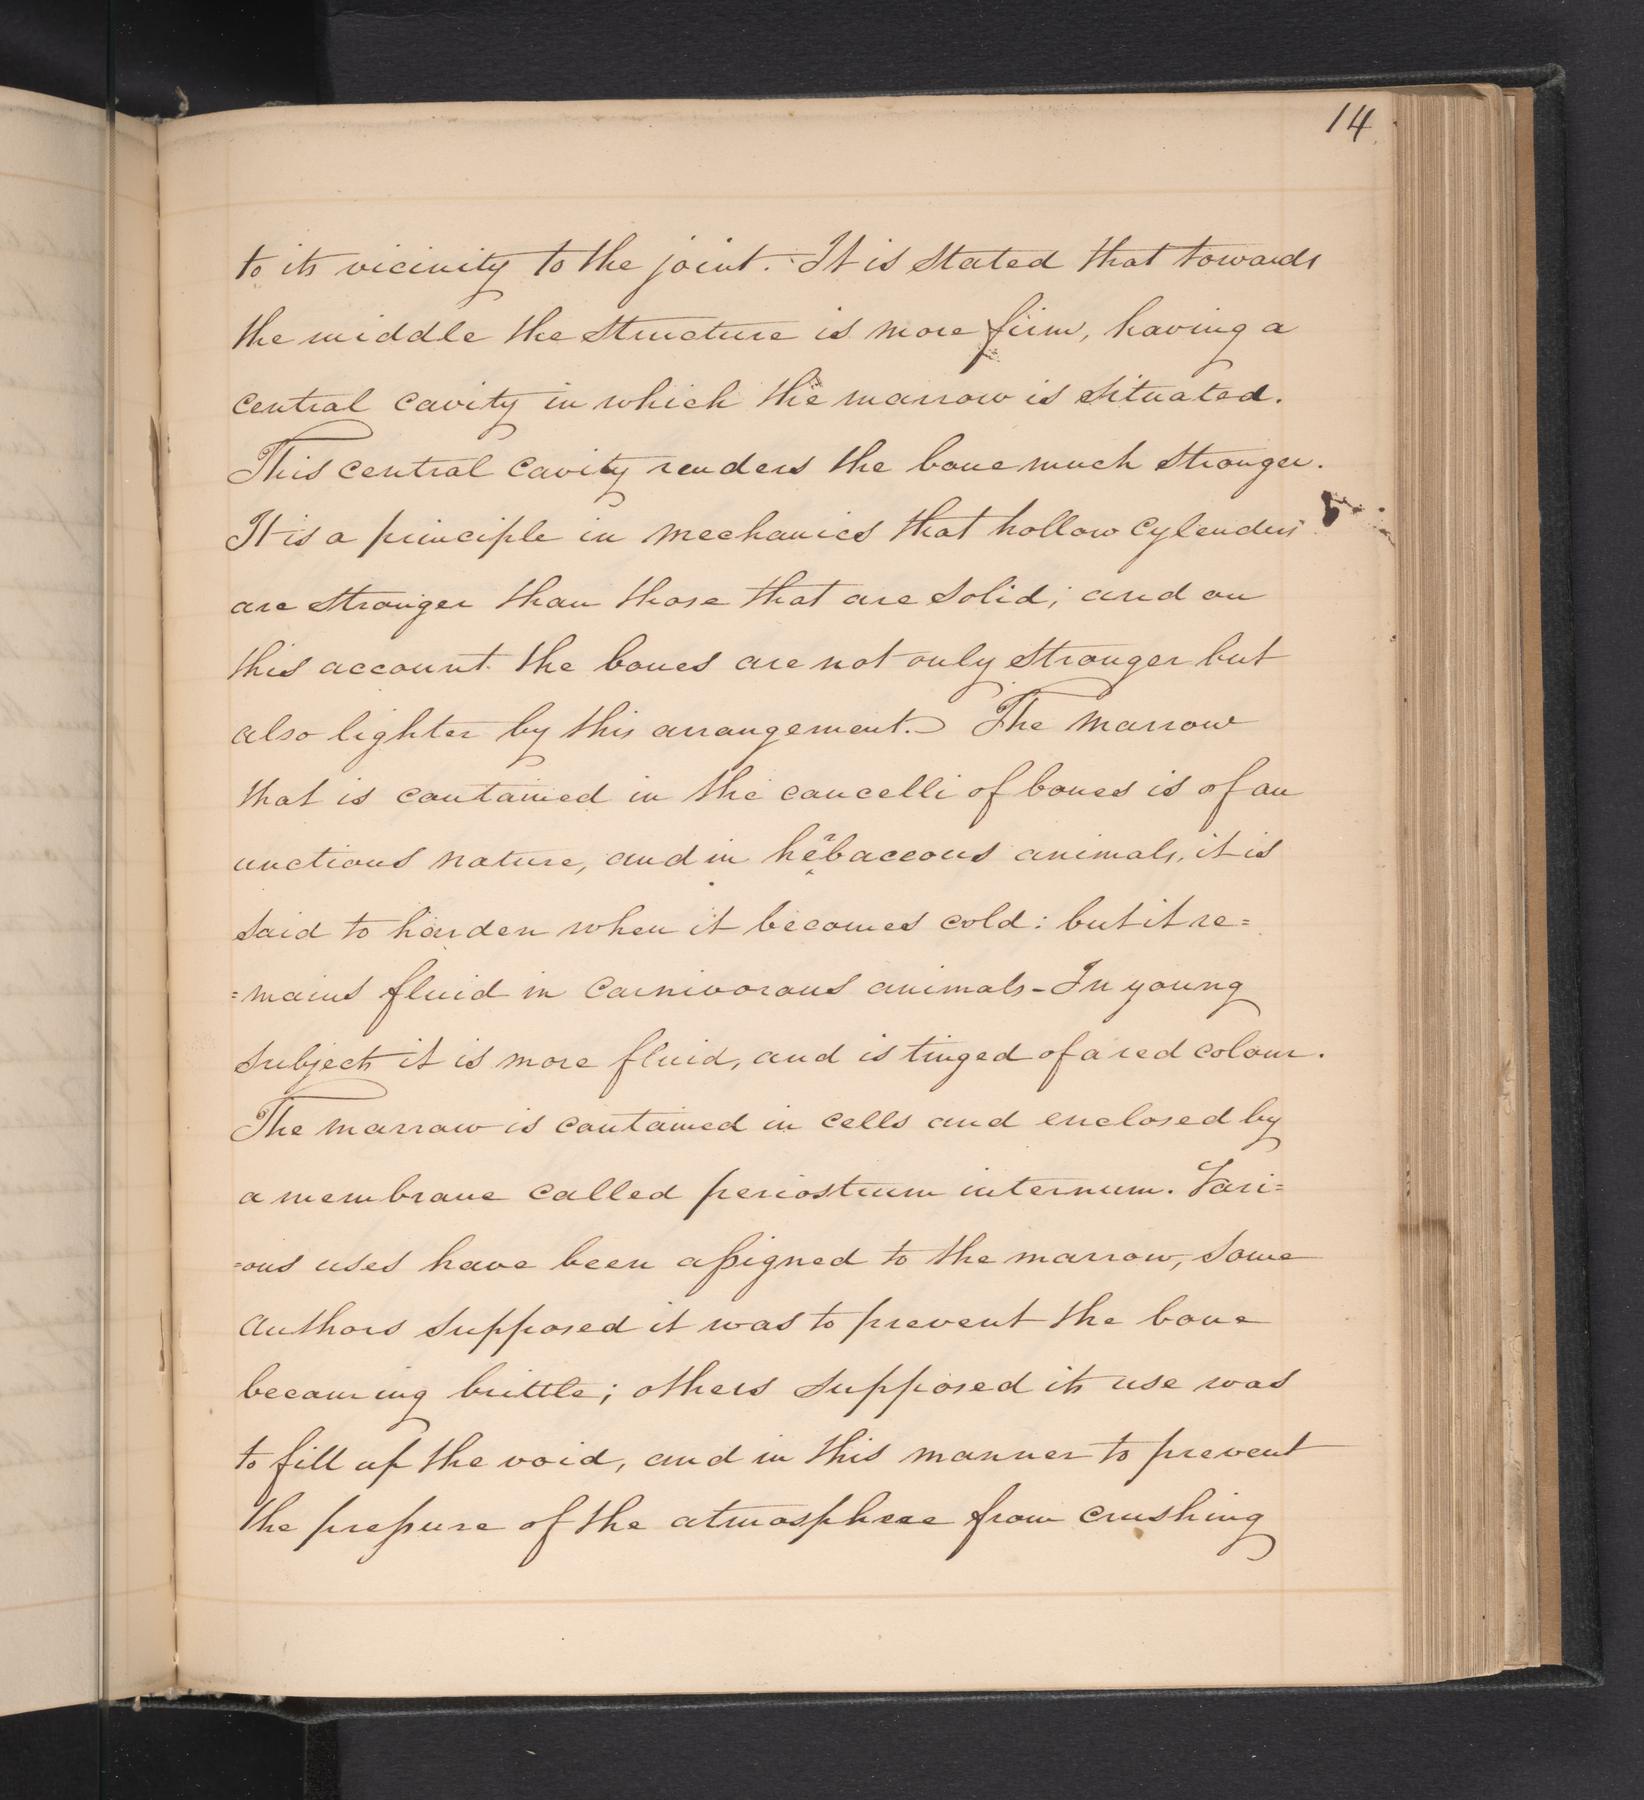 14
to its vicinity to the joint. It is stated that towards
the middle the structure is more firm, having a
central cavity in which the marrow is situated.
This central cavity renders the bone much stronger.
It is a principle in mechanics that hollow cylenders
are stronger than those that are solid; and on
this account the bones are not only stronger but
also lighter by this arrangement. The marrow
that is contained in the cancelli of bones is of an
unctious nature, and in herbaceous animals, it is
said to harden when it becomes cold: but it re=
=mains fluid in carnivorous animals - In young
subjects it is more fluid, and is tinged of a red colour.
The marrow is contained in cells and enclosed by
a membrane called periosteum internum. Vari=
=ous uses have been assigned to the marrow, some
authors supposed it was to prevent the bone
becoming brittle; others supposed its use was
to fill up the void, and in this manner to prevent
the pressure of the atmosphere from crushing